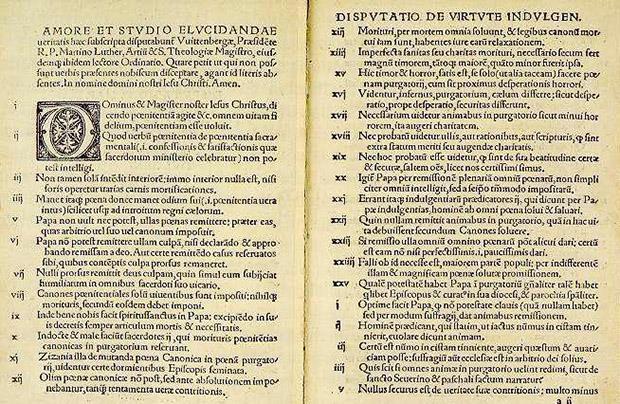 AMORE ET STVDIO ELVCIDANDAE
ueritatis hæc subscripta disputabunť Vuittenbergæ, Præsidēte
R. P. Martino Luther, Artiū & S. Theologiæ Magistro, eiusdemq́ ibidem lectore Ordinario. Quare petit ut qui non possunt uerbis præsentes nobiscum disceptare, agant id literis absentes. In nomine domini nostri Iesu Christi. Amen.
i DOminus & Magister noster Iesus Christus, dicendo pœnitentiā agite &c. omnem uitam fidelium, pœnitentiam esse uoluit.
ij Quod uerbū pœnitentia de pœnitentia sacramentali (.i. confessionis & satisfactionis quæ
sacerdotum ministerio celebratur) non potest intelligi.
iij Non tamen solā intēdit interiorē: immo interior nulla est, nisi
foris operetur uarias carnis mortificationes.
iiij Manet itaq́ pœna donec manet odium sui (.i. pœnitentia uera
intus) scilicet usq́ ad introitum regni cælorum.
v Papa non uult nec potest, ullas pœnas remittere: præter eas,
quas arbitrio uel suo uel canonum imposuit.
vj Papa nō potest remittere ullam culpā, nisi declarādo & approbando remissam a deo. Aut certe remittēdo casus reseruatos
sibi, quibus cōtēptis culpa prorsus remaneret.
vij Nulli prorsus remittit deus culpam, quin simul eum subijciat
humiliatum in omnibus sacerdoti suo uicario.
viij Canones pœnitentiales solū uiuentibus sunt impositi; nihilq́
morituris, secundū eosdem debet imponi.
ix Inde bene nobis facit spiritussanctus in Papa: excipiēdo in suis decretis semper articulum mortis & necessitatis.
x Indocte & male faciūt sacerdotes ij, qui morituris pœnitētias
canonicas in purgatorium reseruant.
xj Zizania illa de mutanda pœna Canonica in pœnā purgatorij, uidentur certe dormientibus Episcopis seminata.
xij Olim pœnæ canonicæ nō post, sed ante absolutionem imponebantur, tanq̄ tentamenta ueræ contritionis.
DISPVTATIO DE VIRTVTE INDVLGEN.
xiij Morituri, per mortem omnia soluunt, & legibus canonū mortui iam sunt, habentes iure earū relaxationem.
xiiij Imperfecta sanitas seu charitas morituri, necessario secum fert
magnū timorem, tātoq́ maiorē, quāto minor fuerit ipsa.
xv Hic timor & horror, satis est, se solo (ut alia taceam) facere pœnam purgatorij, cum sit proximus desperationis horrori.
xvj Videntur, infernus, purgatorium, cælum differre; sicut desperatio, prope desperatio, securitas differunt.
xvij Necessarium uidetur animabus in purgatorio sicut minui horrorem, ita augeri charitatem.
xviij Nec probatū uidetur ullis, aut rationibus, aut scripturis, q̄ sint
extra statum meriti seu augendæ charitatis.
xix Nec hoc probatū esse uidetur, q̄ sint de sua beatitudine certæ
& securæ, saltem oēs, licet nos certissimi simus.
xx Igiť Papa per remissionē plenariā omniū pœnarū, non simpliciter omniū intelligit, sed a seipō tm̄modo impositarū.
xxj Errant itaq́ indulgentiarū prædicatores ij, qui dicunt per Papæ indulgentias, hominē ab omni pœna solui & saluari.
xxij Quin nullam remittit animabus in purgatorio, quā in hac uita debuissent secundum Canones soluere.
xxiij Si remissio ulla omniū omnino pœnarū pōt alicui dari; certū
est eam nō nisi perfectissimis .i. paucissimis dari.
xxiiij Falli ob id necesse est, maiorem partē populi; per indifferentē
illam & magnificam pœnæ solutæ promissionem.
xxv Qualē potestatē habet Papa in purgatoriū gñaliter talē habet
q̄libet Episcopus & curatꝰ in sua diœcesi, & parochia spāliter.
i Optime facit Papa, q̄ nō potestate clauis (quā nullam habet)
sed per modum suffragij, dat animabus remissionem.
ij Hominē prædicant, qui statim, ut iactus nūmus in cistam tinnierit, euolare dicunt animam.
iij Certū est nūmo in cistam tinniente, augeri quæstum & auaritiam posse; suffragiū aūt ecclesiæ est in arbitrio dei solius.
iiij Quis scit si omnes animæ in purgatorio uelint redimi, sicut de
sancto Seuerino & paschali factum narratur
v Nullus securus est de ueritate suæ contritionis; multo minus
a ij